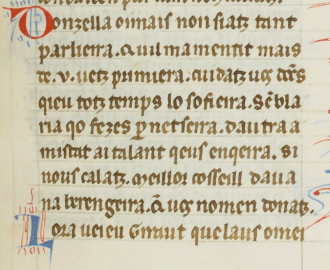 Donzella oimais non siatz tant
parlieira. Qu il ma mentit mais
de .v. uetz primiera. cuidatz uos doncs
qieu totz temps lo sofieira. Sēbla
ria qo fezes p netseira. dautra a
mistat ai talant qeus enqeira. Si
nous calatz. Meillor cosseill daua
na berengeira. Qa uos nomen donatz.
Lora uei eu Giraut que laus omei